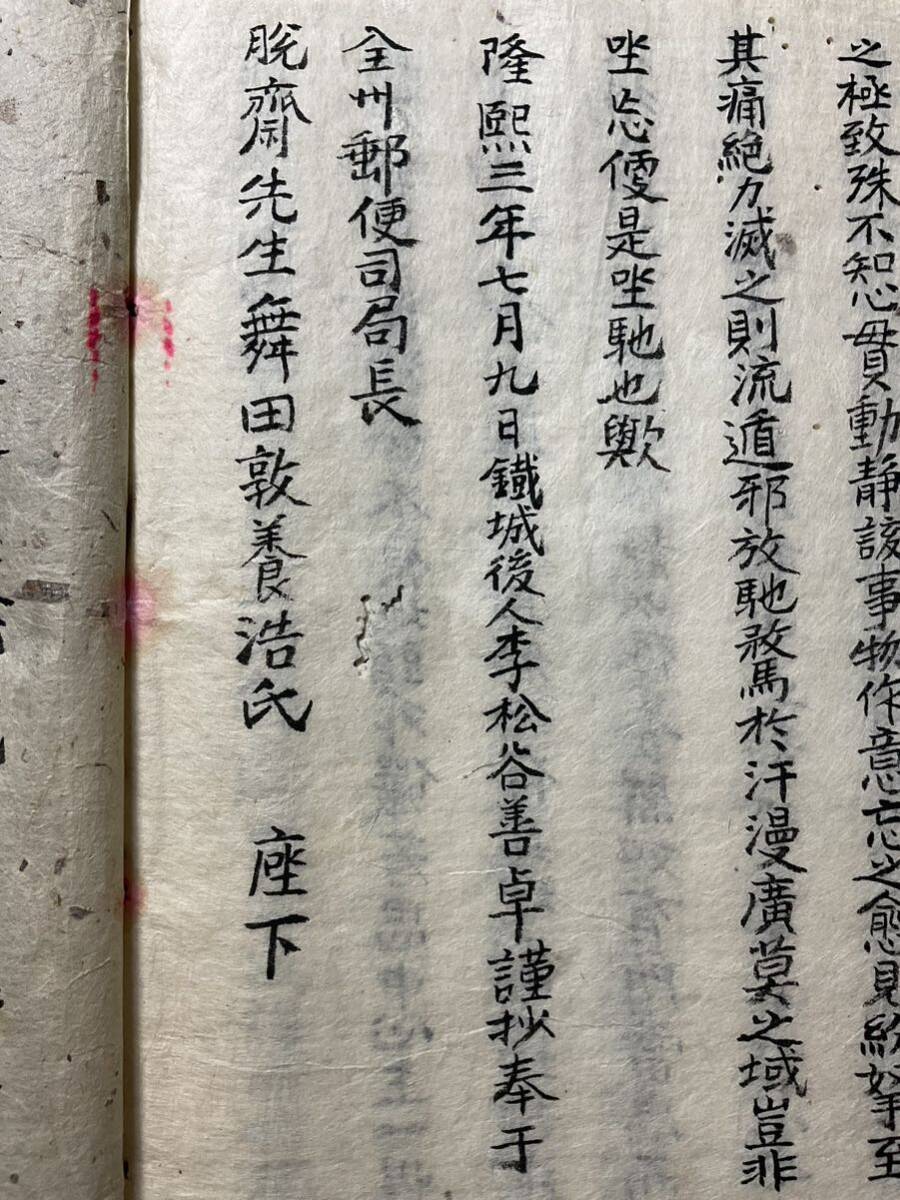 之極致殊不知心貫動静該事物作意忘之愈見紛拏至
其痛絶力滅之則流遁邪放馳騖於汗漫廣莫之域豈非
坐忘便是坐馳也歟
隆熙三年七月九日鐵城後人李松谷善卓謹抄奉于
全州郵便司局長
脫齋先生舞田敦養浩氏 座下